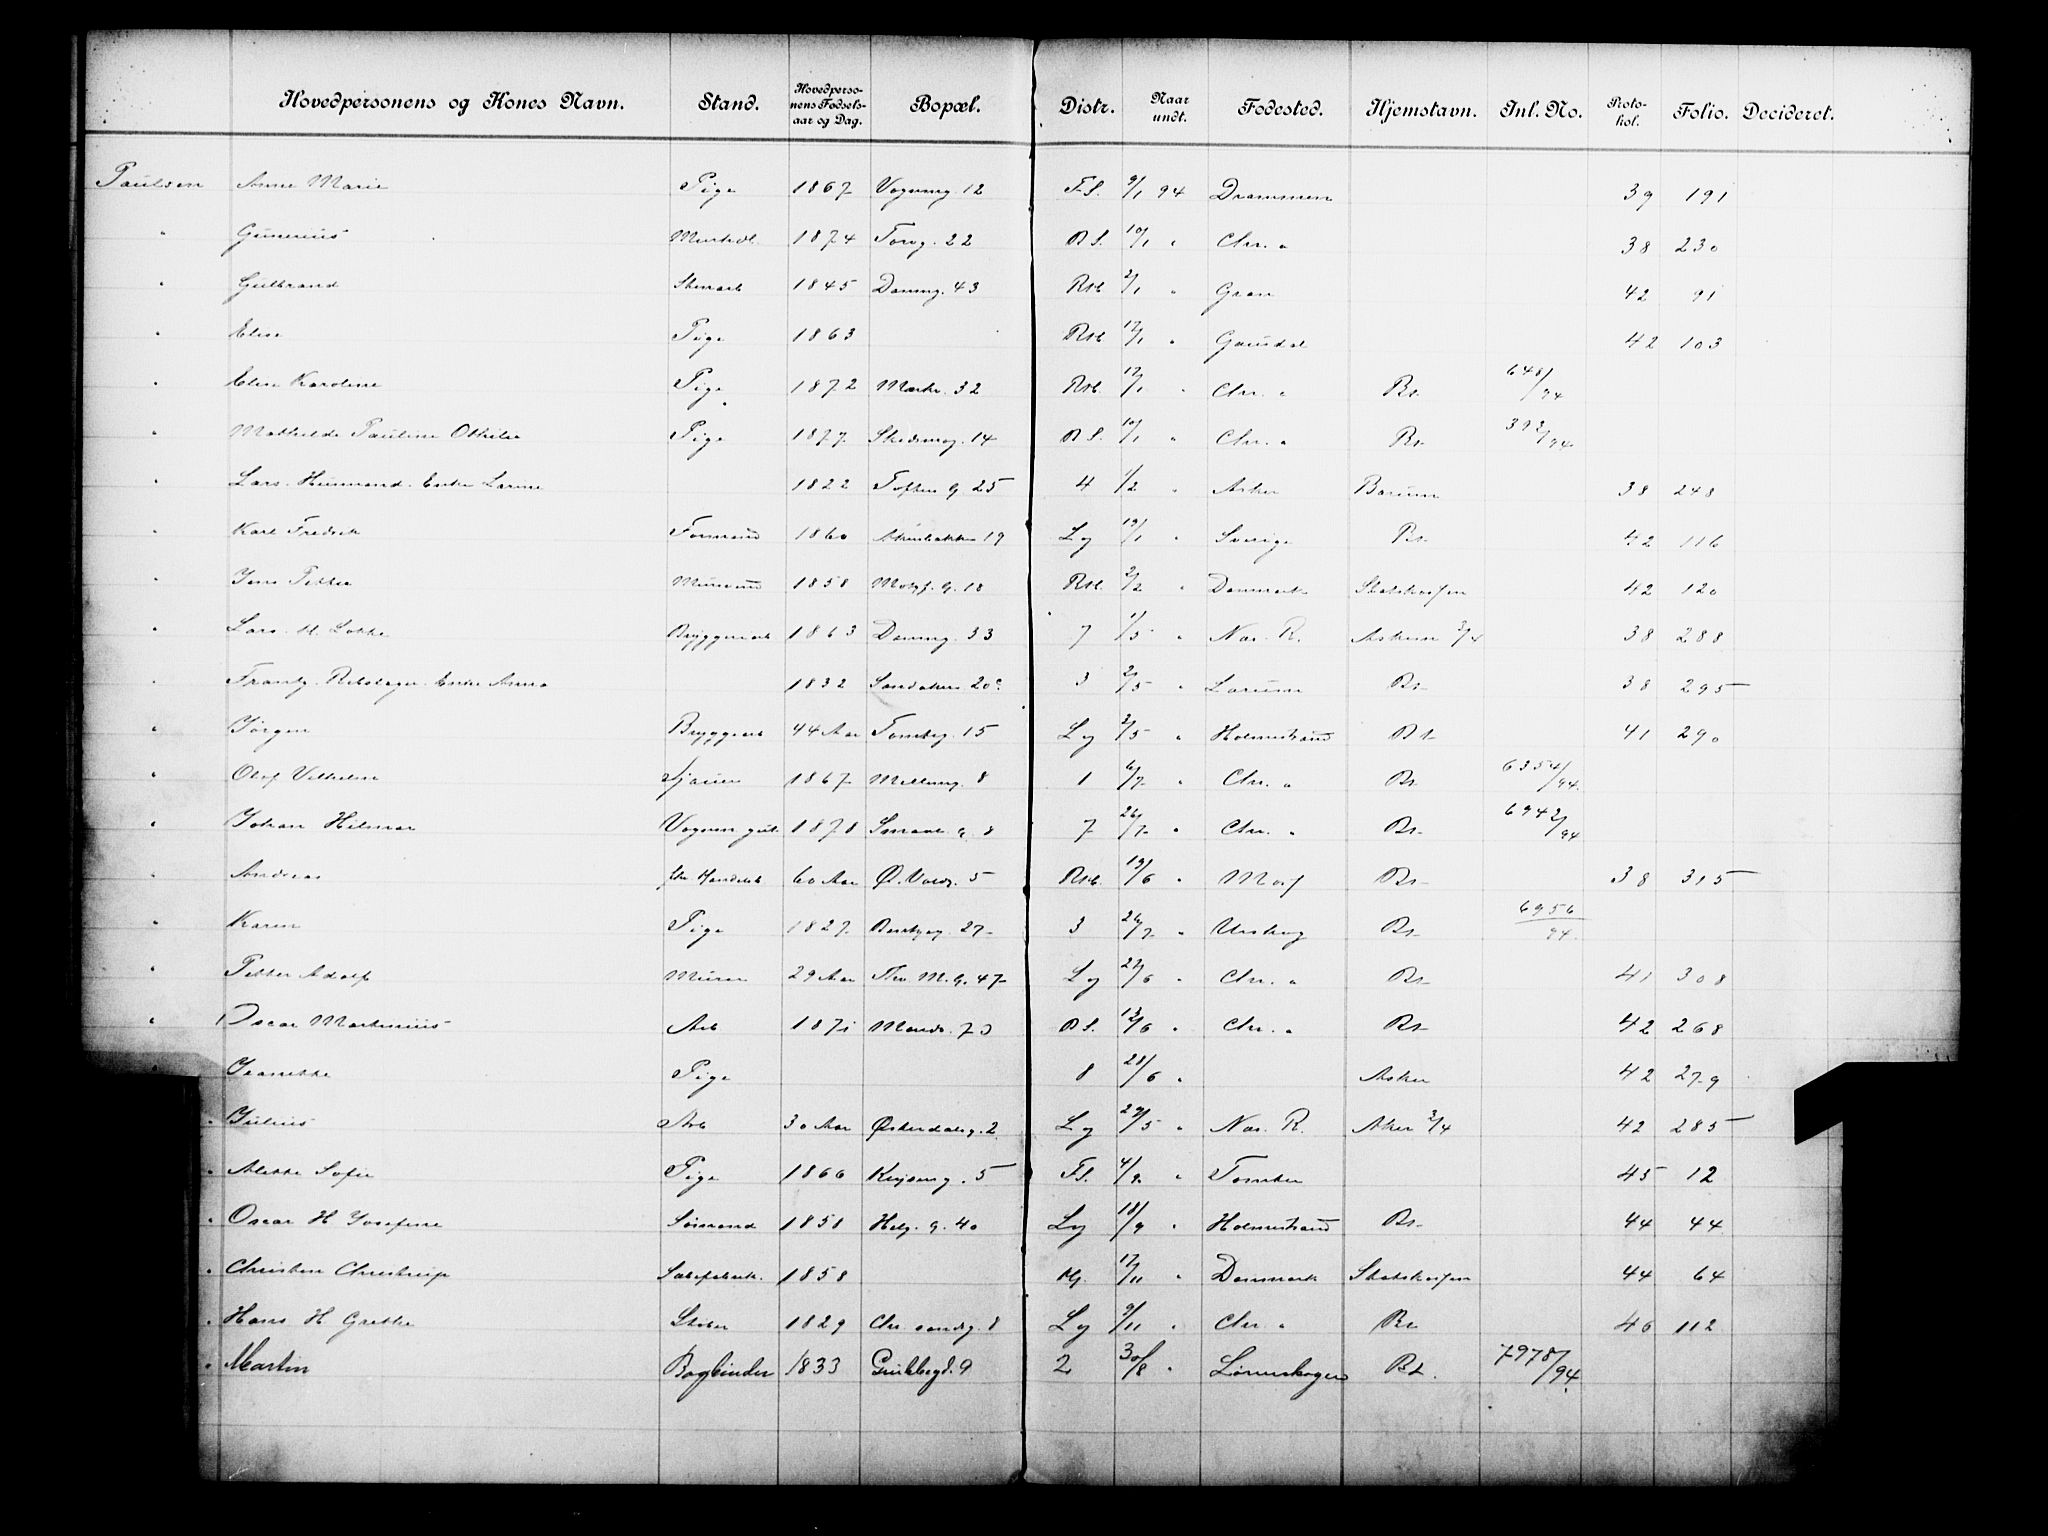 Hovedpersonens og Kones Navn. Stand. Hovedpersonens Fødselsaar og Dag. Bopæl. Distr. Naar undt. Fødested. Hjemstavn. Inl. No. Protokol. Folio. Decideret.
Paulsen Anne Marie Pige 1867 Vognmg. 12 F.S. 9/1 94 Drammen 39 191
" Gunerius 1874 Torvg. 22 B S. 10/1 " Chr. a 38 230
" Gulbrand Stenarb 1845 Damng. 43 Rst 2/1 " Gran 42 91
" Elise Pige 1863 Rst 17/1 " Gausdal 42 103
" Elise Karoline Pige 1872 Markv. 32 Rst. 17/1 " Chr. a Bt. 648/94
" Mathilde Pauline Othilie Pige 1877 Skedsmog. 14 B S. 10/1 " Chr. a Bt 392/94
" Lars Husmand Enke Larine 1822 Toftes G. 25 4 1/2 " Asker Bærum 38 248
" Karl Fredrik Formand 1860 Akersbakken 19 Lg 19/1 " Sverige Bt. 42 116
" Jens Petter 1858 Motzf. G. 18 Rst. 2/2 " Danmark 42 120
" Lars M. Løkke Bryggeriarb 1863 Damng. 33 7 1/5 " Nes. R. 3/4 38 288
" Frantz Rebslager Enke Anna 1832 Sandakerv 20c 3 2/5 " Bt 38 295
" Jørgen Bryggearb 44 Aar Tomteg. 15 Lg 2/5 " Holmestrand Bt 41 290
" Olaf Vilhelm Sjauer 1867 Møllerng. 8 1 6/7 " Chr. a Bt. 6354/94
" Johan Hilmar Vognm gut. 1878 8 7 26/7 " Chr. a Bt 6942/94
" Andreas fhv Handelsb 60 Aar Ø. Voldg. 5 Rst. 19/6 " Bt 38 315
" Karen Pige 1827 27 3 26/7 " Urskog Bt 6956/94
" Petter Adolf Murer 29 Aar Thv. M. G. 47 Lg 22/6 " Chr. a Bt 41 308
" Oscar Martinius Arb 1871 B S. 12/6 " Chr. a Bt 42 268
" Jeanette Pige 8 28/6 " Asker 42 279
" Julius Arb 30 Aar Østerdalsg. 2 Lg 29/5 " Nes. R. Aker 3/4 42 285
" Alette Sofie Pige 1866 Keyserg. 5 F.S. 4/9 " Tomter 45 12
" Oscar H Josefine Sømand 1858 Helg. G. 40 Lg 18/9 " Holmestrand Bt 44 44
" Christen Christrup 1858 17/11 " Danmark 44 64
" Hans H Grethe 1829 Chr. sandg. 8 Lg 9/11 " Chr. a Bt 46 112
" Martin Bogbinder 1833 9 2 30/8 " Lørenskogen Bt. 7978/94